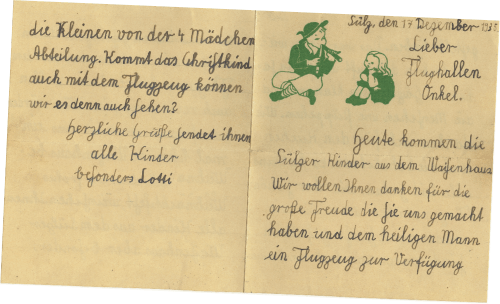 Sülz, den 17 Dezember
Lieber
Flughallen
Onkel.
Heute kommen die
Sülzer Kinder aus dem Waisenhaus
Wir wollen Ihnen danken für die
große Freude die Sie uns gemacht
haben und dem heiligen Mann
ein Flugzeug zur Verfügung
die Kleinen von der 4 Mädchen
Abteilung. Kommt das Christkind
auch mit dem Flugzeug können
wir es denn auch sehen?
Herzliche Grüße sendet ihnen
alle Kinder
besonders Lotti